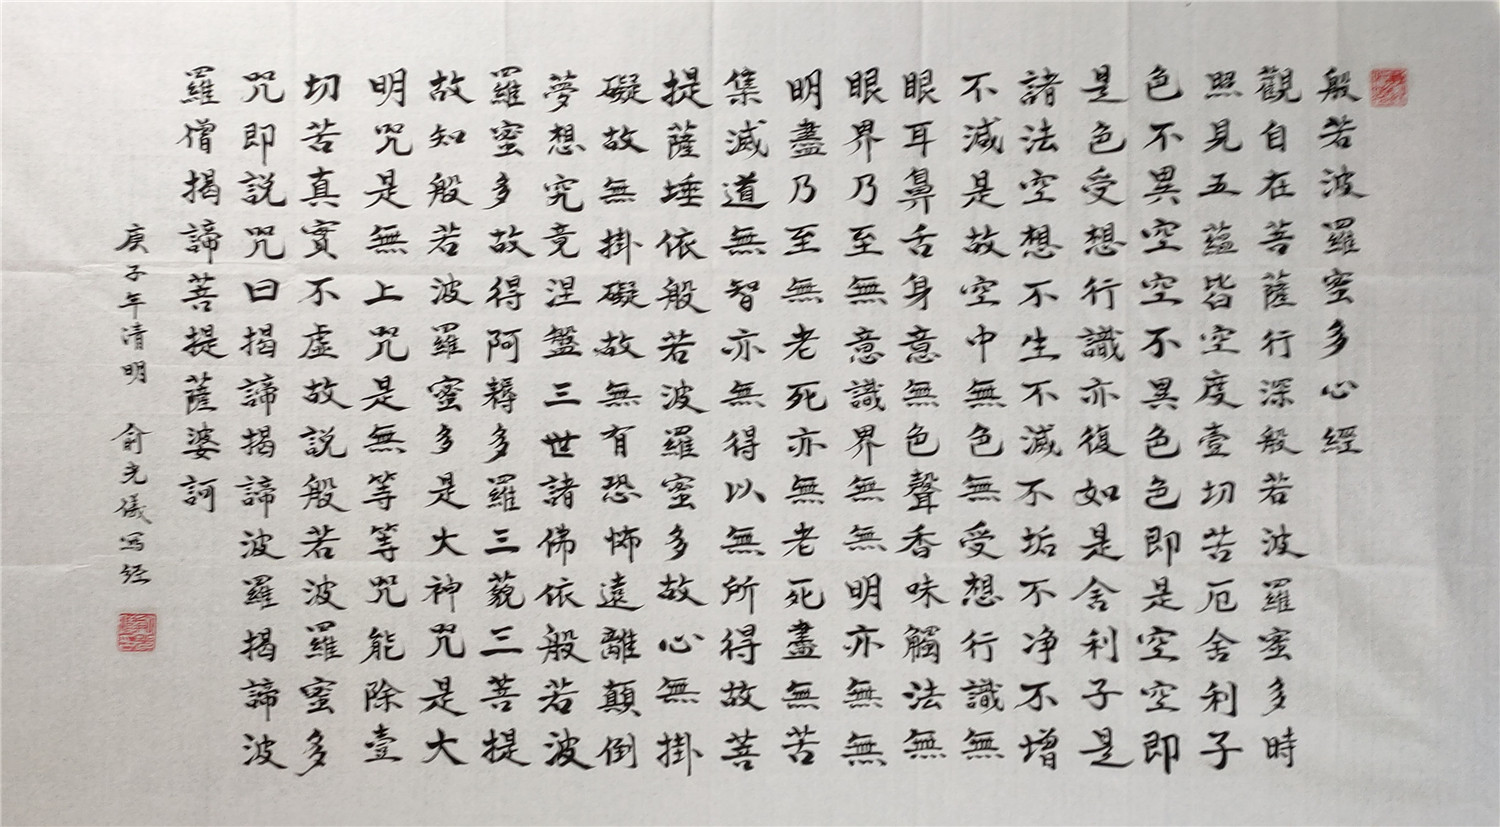 般若波羅蜜多心經
觀自在菩薩行深般若波羅蜜多時
照見五蘊皆空度壹切苦厄舍利子
色不異空空不異色色即是空空即
是色受想行識亦復如是舍利子是
諸法空想不生不滅不垢不净不增
不減是故空中無色無受想行識無
眼耳鼻舌身意無色聲香味觸法無
眼界乃至無意識界無無明亦無無
明盡乃至無老死亦無老死盡無苦
集滅道無智亦無得以無所得故菩
提薩埵依般若波羅蜜多故心無掛
礙故無掛礙故無有恐怖遠離顛倒
夢想究竟涅盤三世諸佛依般若波
羅蜜多故得阿耨多羅三藐三菩提
故知般若波羅蜜多是大神咒是大
明咒是無上咒是無等等咒能除壹
切苦真實不虛故説般若波羅蜜多
咒即説咒曰揭諦揭諦波羅揭諦波
羅僧揭諦菩提薩婆訶
庚子年清明 俞光儀写经